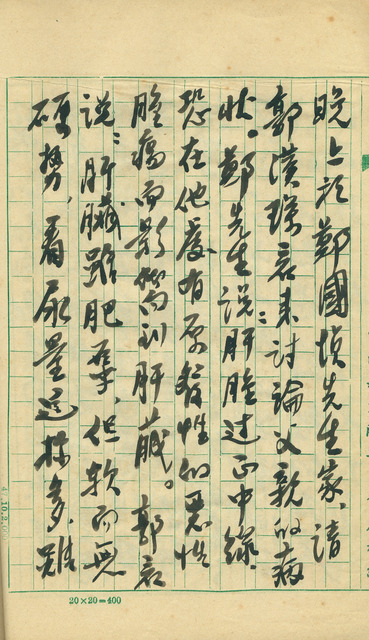 晚上於鄭國慎先生家,請
郭漢琛君來討論父親的病
狀。鄭先生說:肝膽过正中線,
恐在他處有原發性的惡性
腫瘍而影響到肝臟。郭君
說:肝臟雖肥厚,但軟而無
硬勢,看尿量這樣多,雖
20×20=400